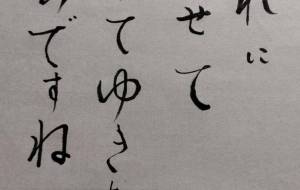 れに
せて
てゆき
ですね